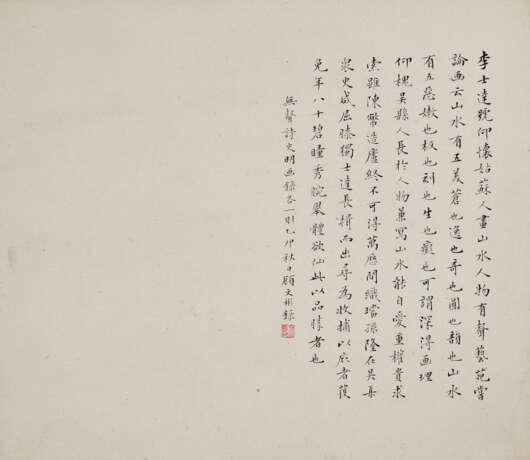 李士達號仰懷姑蘇人畫山水人物有聲藝苑嘗
論画云山水有五美蒼也逸也奇也圓也韻也山水
有五惡嫩也板也刻也生也癡也可謂深得画理
仰槐吳縣人長於人物兼寫山水能自愛重權貴求
索雖陳幣造廬終不可得萬應間織璫孫隆在吳集
衆史咸屈膝獨士達長揖而出尋為收捕以庇者獲
免年八十碧瞳秀腕舉體欲仙此以品勝者也
無聲詩史明画錄各一則乙卯秋日顧文彬錄